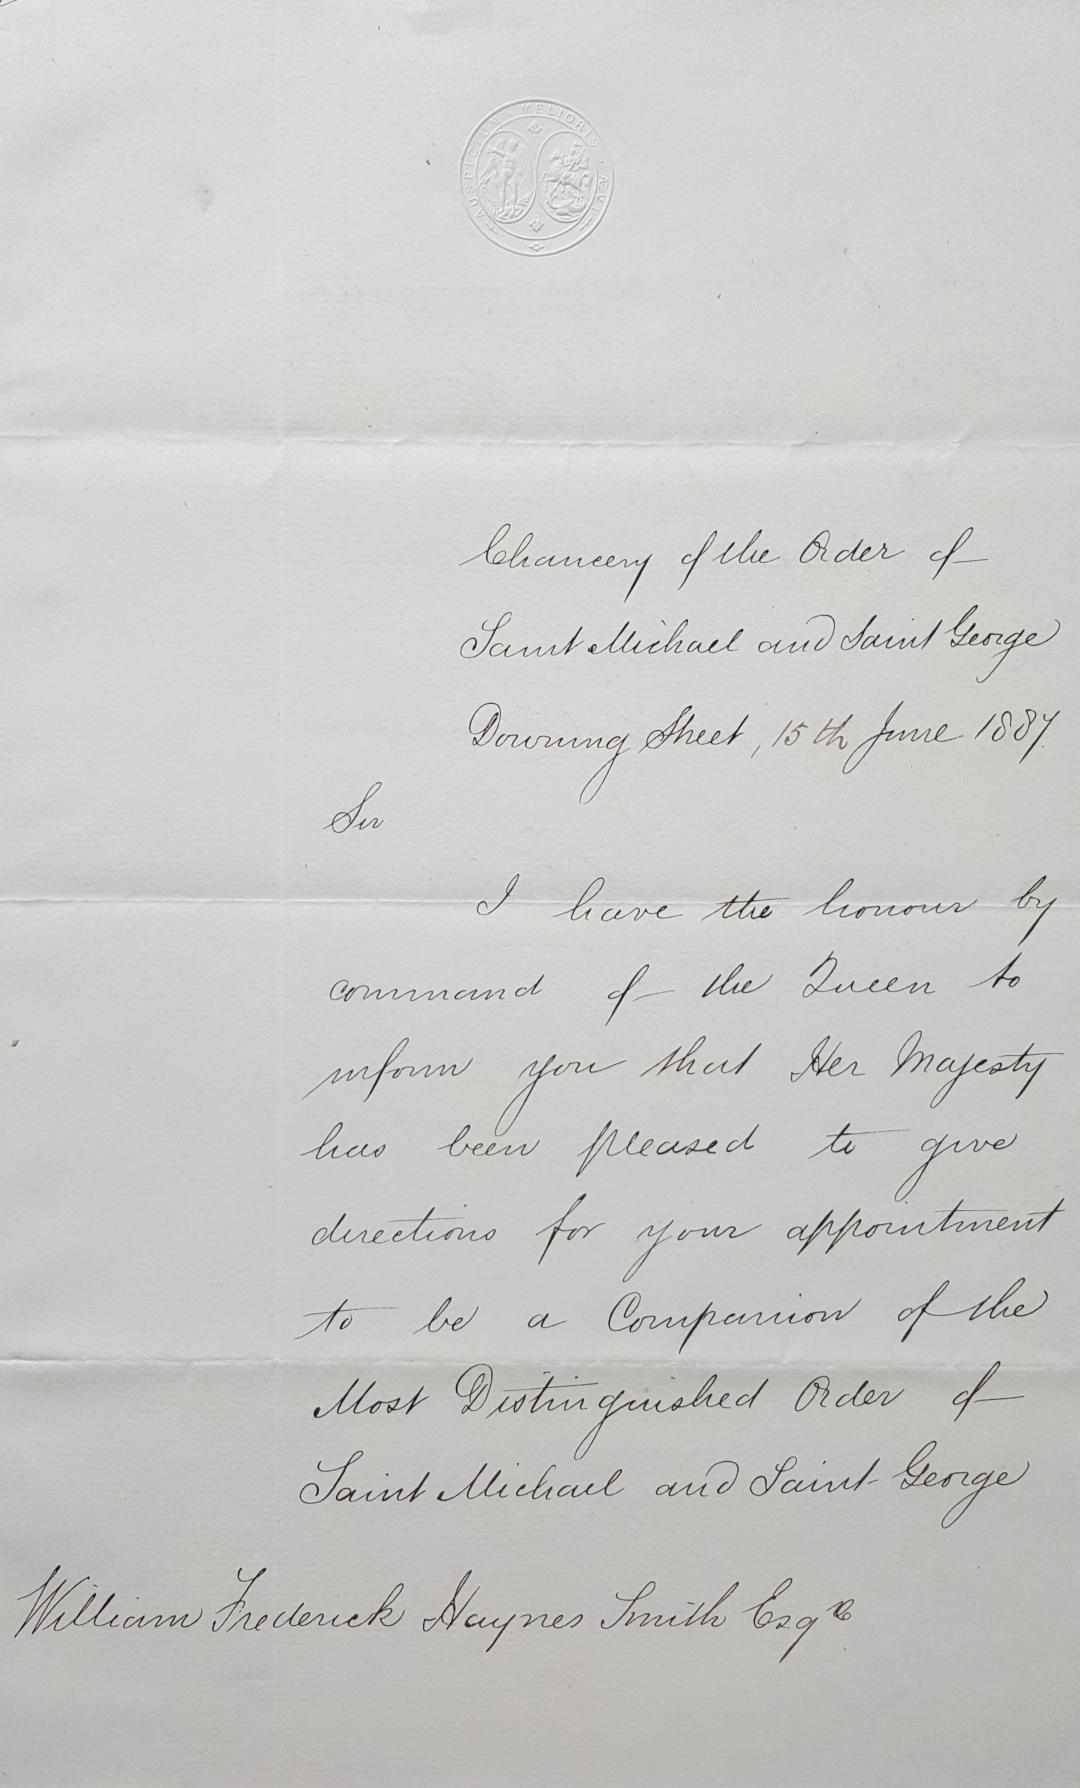 AUSPICIUM MELIORIS ÆVI
Chancery of the Order of
Saint Michael and Saint George
Downing Street, 15th June 1887.
Sir
I have the honour by
command of the Queen to
inform you that Her Majesty
has been pleased to give
directions for your appointment
to be a Companion of the
Most Distinguished Order of
Saint Michael and Saint George
William Frederick Haynes Smith Esqre